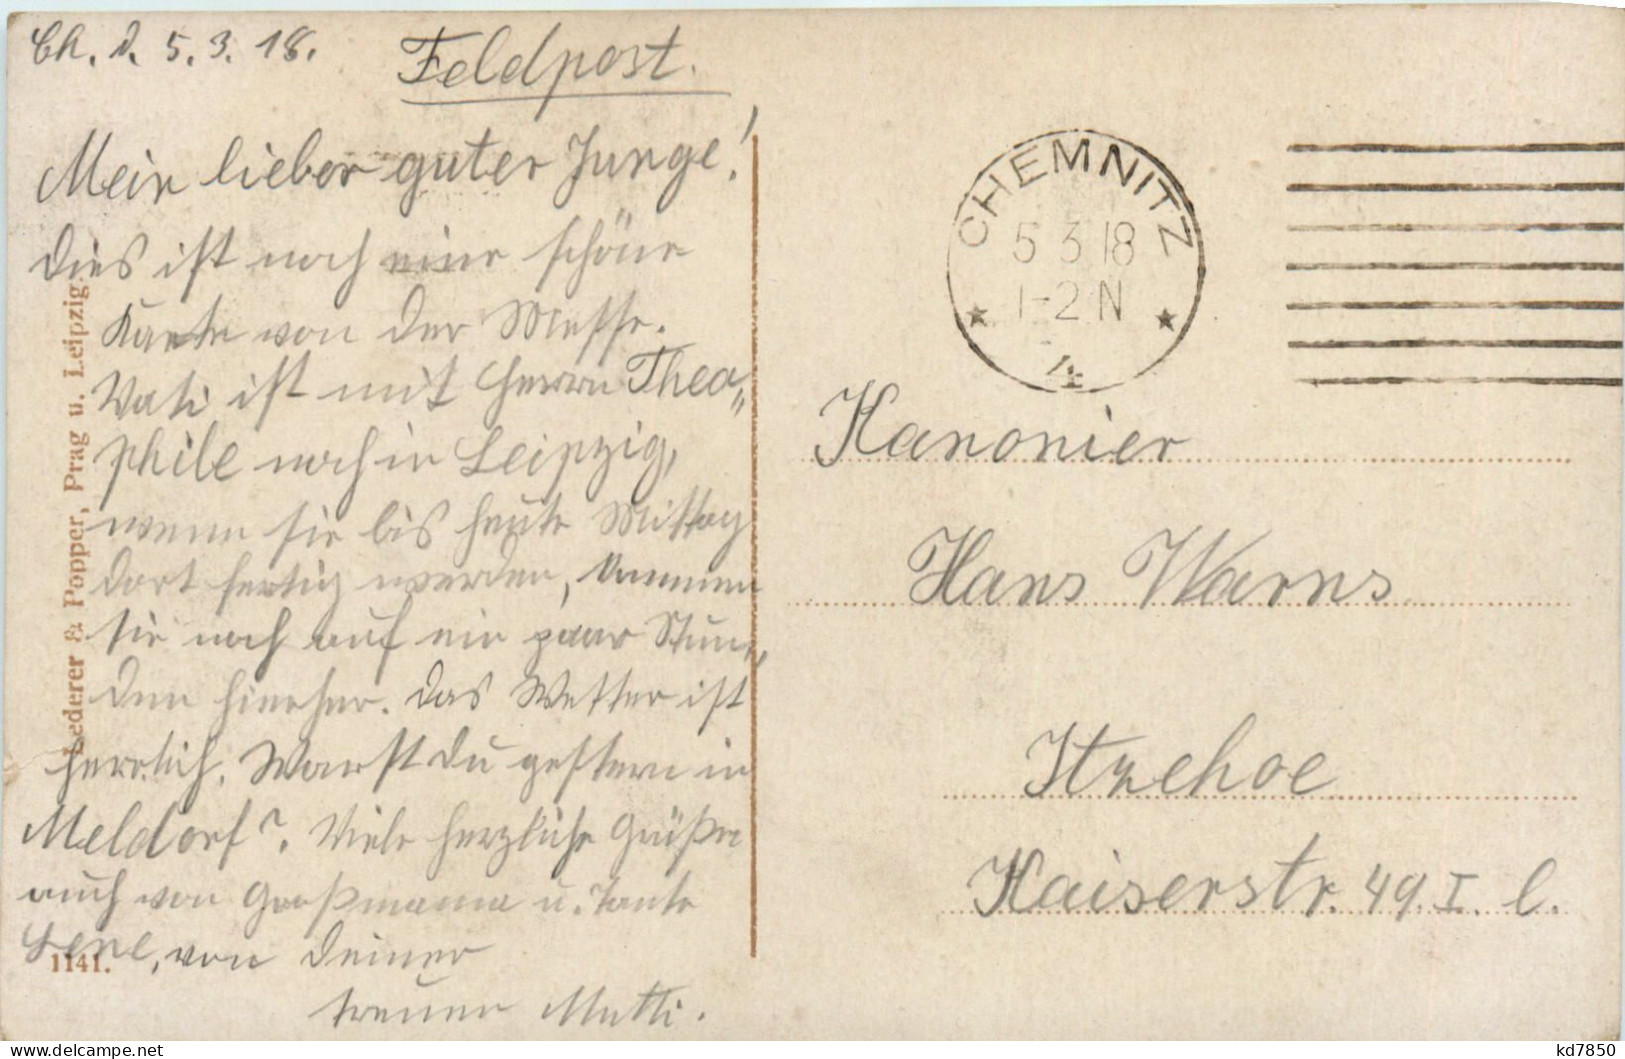 Ch. d. 5.3.18.
Feldpost.
Mein lieber guter Junge!
Dies ist noch eine schöne
Karte von der Messe.
Vati ist mit Herrn Theo„
phile noch in Leipzig,
wenn sie bis heute Mittag
dort fertig werden, kommen
sie noch auf ein paar Stun„
den hierher. Das Wetter ist
herrlich. Warst Du gestern in
Meldorf? Viele herzliche Grüße
auch von Großmama u. Tante
Lene, von Deiner
treuen Mutti.
Lederer & Popper, Prag u. Leipzig.
1141.
CHEMNITZ
5 3 18
1-2 N
4
Kanonier
Hans Warns
Itzehoe
Kaiserstr. 49. I. l.
kd7850